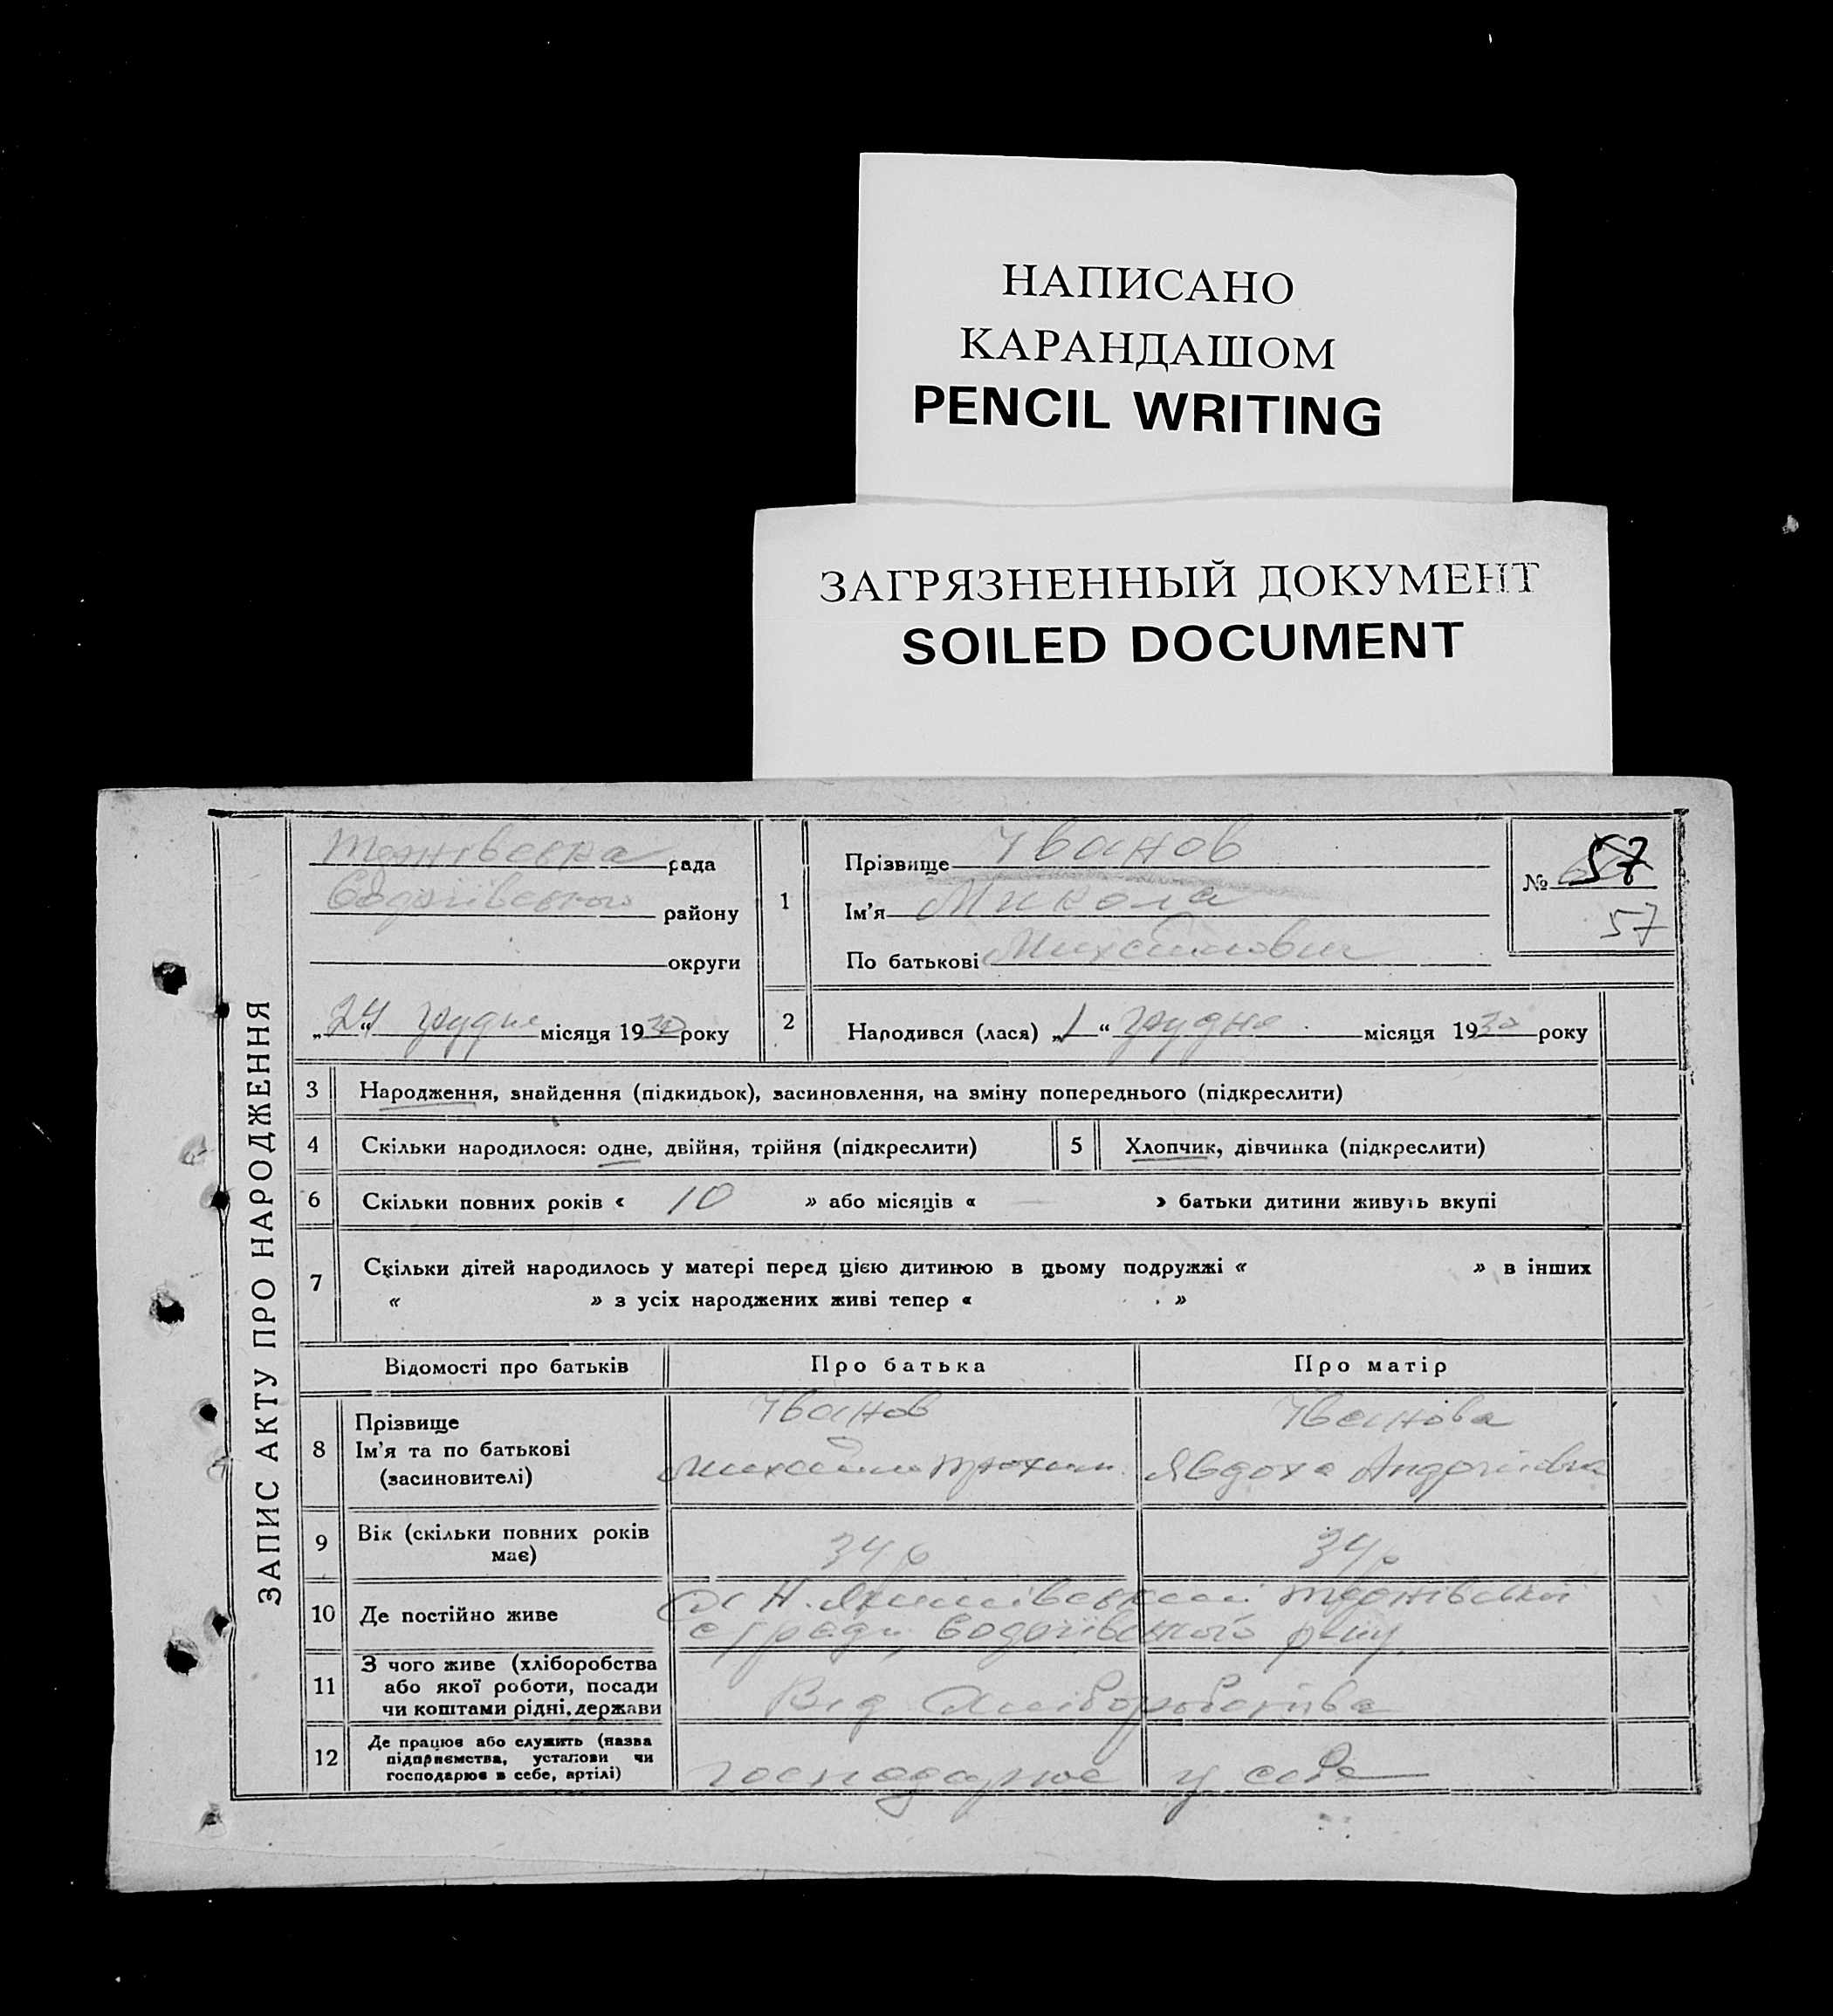 НАПИСАНО
КАРАНДАШОМ
PENCIL WRITING
ЗАГРЯЗНЕННЫЙ ДОКУМЕНТ
SOILED DOCUMENT
ЗАПИС АКТУ ПРО НАРОДЖЕННЯ
рада
району
округи
„24“ грудня місяця 1930 року
1
Прізвище Іванов
Ім'я Микола
По батькові Михайлович
№ 57
57
2
Народився (лася) „1“ грудня місяця 1930 року
3 Народження, знайдення (підкидьок), засиновлення, на зміну попереднього (підкреслити)
4 Скільки народилося: одне, двійня, трійня (підкреслити)
5 Хлопчик, дівчинка (підкреслити)
6 Скільки повних років « 10 » або місяців « — » батьки дитини живуть вкупі
7 Скільки дітей народилось у матері перед цією дитиною в цьому подружжі « » в інших
« » з усіх народжених живі тепер « »
Відомості про батьків Про батька Про матір
8 Прізвище
Ім'я та по батькові
(засиновителі)
Іванов
Михайло
Іванова
Явдоха Андріївна
9 Вік (скільки повних років
має)
34 р
34 р
10 Де постійно живе
с/ради, р-ну
11 З чого живе (хліборобства
або якої роботи, посади
чи коштами рідні, держави
Від Хліборобства
12 Де працює або служить (назва
підприємства, установи чи
господарює в себе, артілі)
господарює у себе